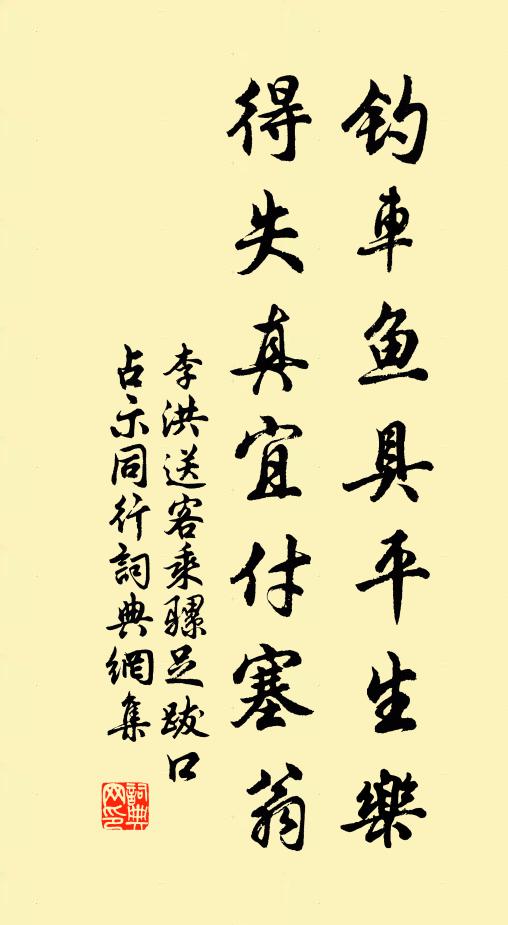 钓車鱼具平生樂
得失真宜付塞翁
李洪送客乘騾足跋口
占示同行詞典網集
詞典网印